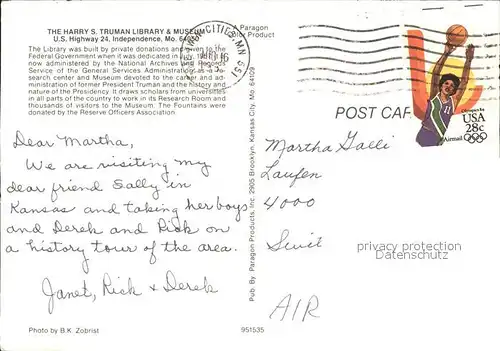 THE HARRY S. TRUMAN LIBRARY & MUSEUM
U.S. Highway 24, Independence, Mo.
The Library was built by private donations and given to the
Federal Government when it was dedicated in July
now administered by the National Archives and Records
Service of the General Services Administration as a re-
search center and Museum devoted to the career and ad-
ministration of former President Truman and the history and
nature of the Presidency. It draws scholars from universities
in all parts of the country to work in its Research Room and
thousands of visitors to the Museum. The Fountains were
donated by the Reserve Officers Association.
A Paragon
Product
TWIN CITIES MN 551
Dear Martha,
We are visiting my
dear friend Sally in
Kansas and taking her boys
and Derek and Rick on
a history tour of the area.
Janet, Rick & Derek
Photo by B.K. Zobrist
Pub. By Paragon Products, Inc 2905 Brooklyn, Kansas City, Mo. 64109
951535
POST CAR
Olympics 84
USA
28c
Airmail
Martha Galli
Laufen
4000
Swit
AIR
privacy protection
Datenschutz